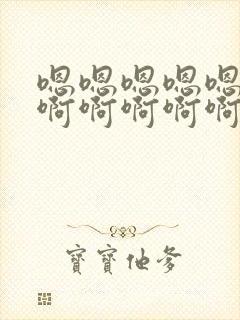 嗯嗯嗯嗯嗯
啊啊啊啊啊
寶寶他爹